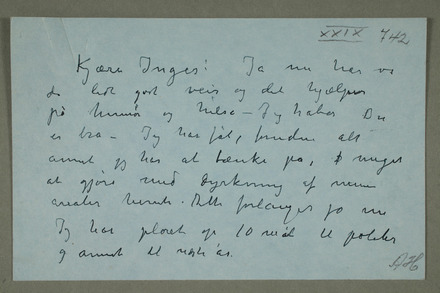 XXIX 742
Kjære Inger! Ja nu har vi
da lidt godt veir og det hjælper
på humør og helsa – Jeg haber Du
er bra – Jeg har fåt, foruden alt
annet jeg har at tænke på, meget
at gjøre med dyrkning af mine
arealer herute. Dette forlanges jo nu
Jeg har pløiet op 10 mål til poteter
og annet til næste år.